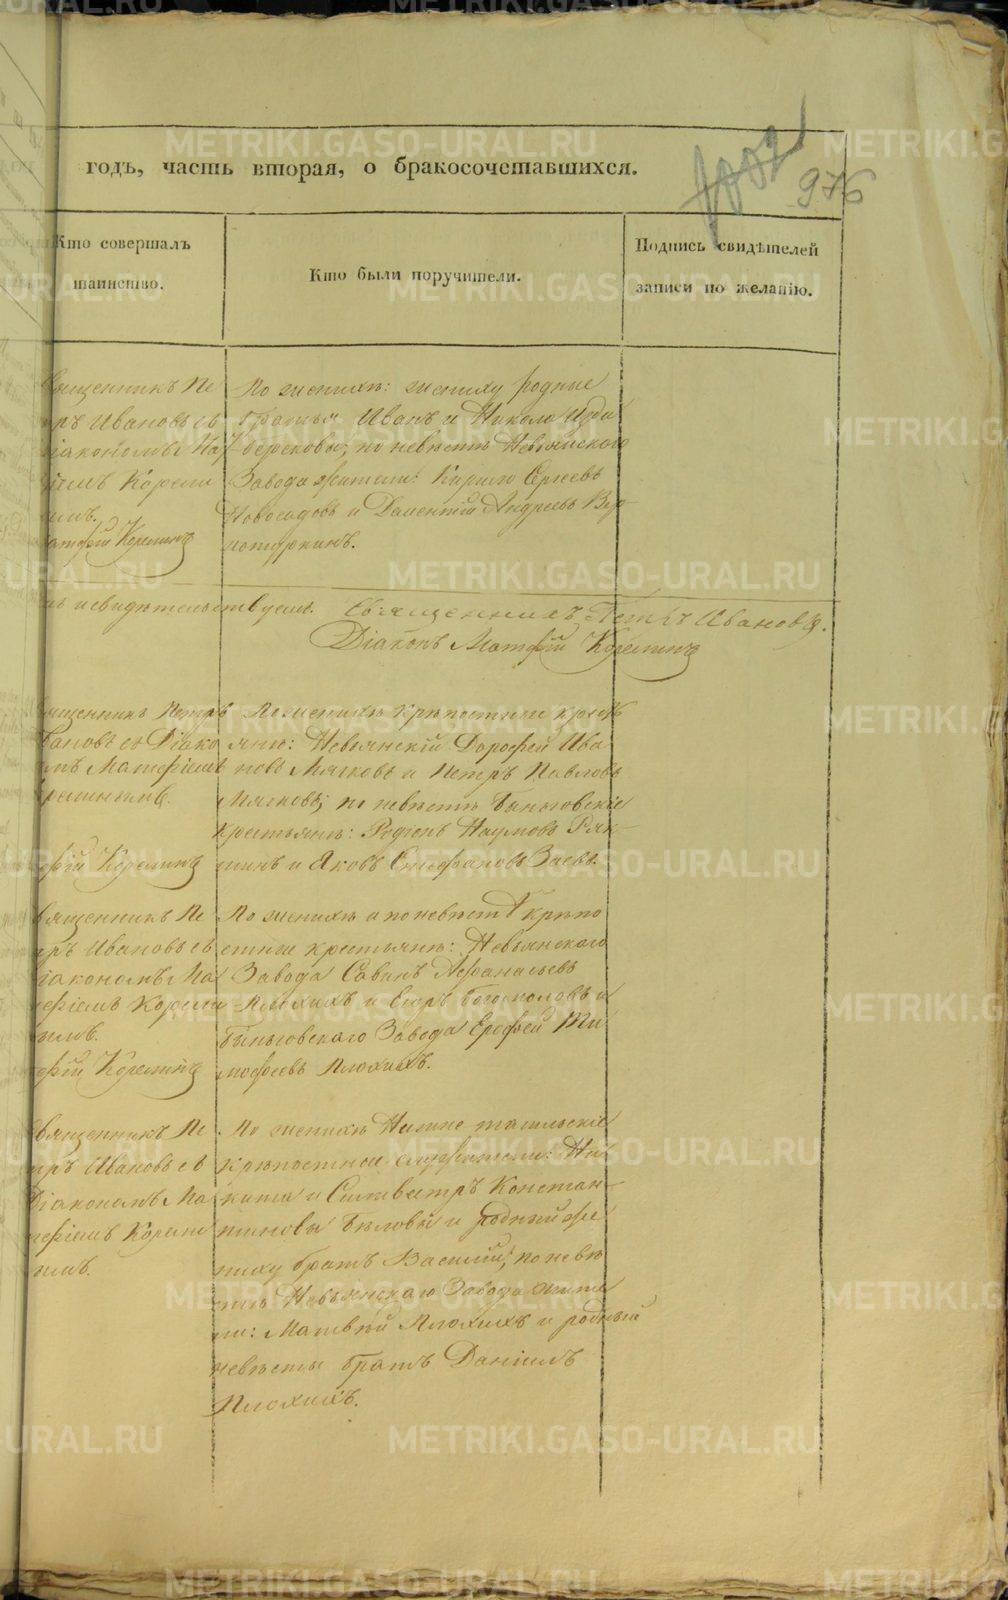 годъ, часть вторая, о бракосочетавшихся.
976
Кто совершалъ
таинство.
Кто были поручители.
Подпись свидѣтелей
записи по желанію.
священникъ Пе
тръ Ивановъ съ
діакономъ Ма
Корели
нымъ.
Корелинъ
По женихѣ: жениху родные
братья Иванъ и Никола
по невѣстѣ Невьянскаго
Завода жители: Кирило Сергѣевъ
Новосадовъ и Дементій Андреевъ Вер
хотуркинъ.
и свидѣтельствуемъ. Священникъ Петръ Ивановъ.
Діаконъ Матфій Корелинъ
священникъ Петръ
Ивановъ съ Діако
мъ Матфіемъ
Корелинымъ.
Корелинъ
По женихѣ крѣпостные кресть
яне: Невьянскій Дорофей Ива
новъ Мягковъ и Петръ Павловъ
Мягковъ; по невѣстѣ Быньговскіе
крестьяне: Родіонъ Наумовъ Ряк
шинъ и Яковъ Стефановъ Заевъ.
священникъ Пе
тръ Ивановъ съ
діакономъ Ма
фіемъ Корели
нымъ.
Корелинъ
По женихѣ и по невѣстѣ крѣпо
стные крестьяне: Невьянскаго
Завода Саванъ Афанасьевъ
Плохихъ и Егоръ Богомоловъ и
Быньговскаго Завода Ерофей Ти
мофеевъ Плохихъ.
Священникъ Пе
тръ Ивановъ съ
Діакономъ Ма
фіемъ Корели
нымъ.
По женихѣ Нижне тагильскіе
крѣпостные жители: Ни
кита и Силвестръ Констан
тиновы Бѣловы и родный же
ниху братъ Василій; по невѣ
стѣ Невьянскаго Завода жите
ли: Матвѣй Плохихъ и родный
невѣсты братъ Даніилъ
Плохихъ.